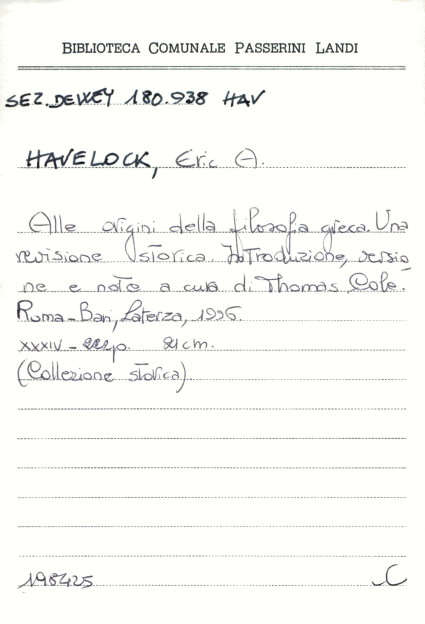 BIBLIOTECA COMUNALE PASSERINI LANDI
SEZ. DEWEY 180.938 HAV
HAVELOCK, Eric A.
Alle origini della filosofia greca. Una
revisione storica. Introduzione, versio
ne e note a cura di Thomas Cole.
Roma-Bari, Laterza, 1996.
XXXIV - p. 21 cm.
(Collezione storica)
198425
C